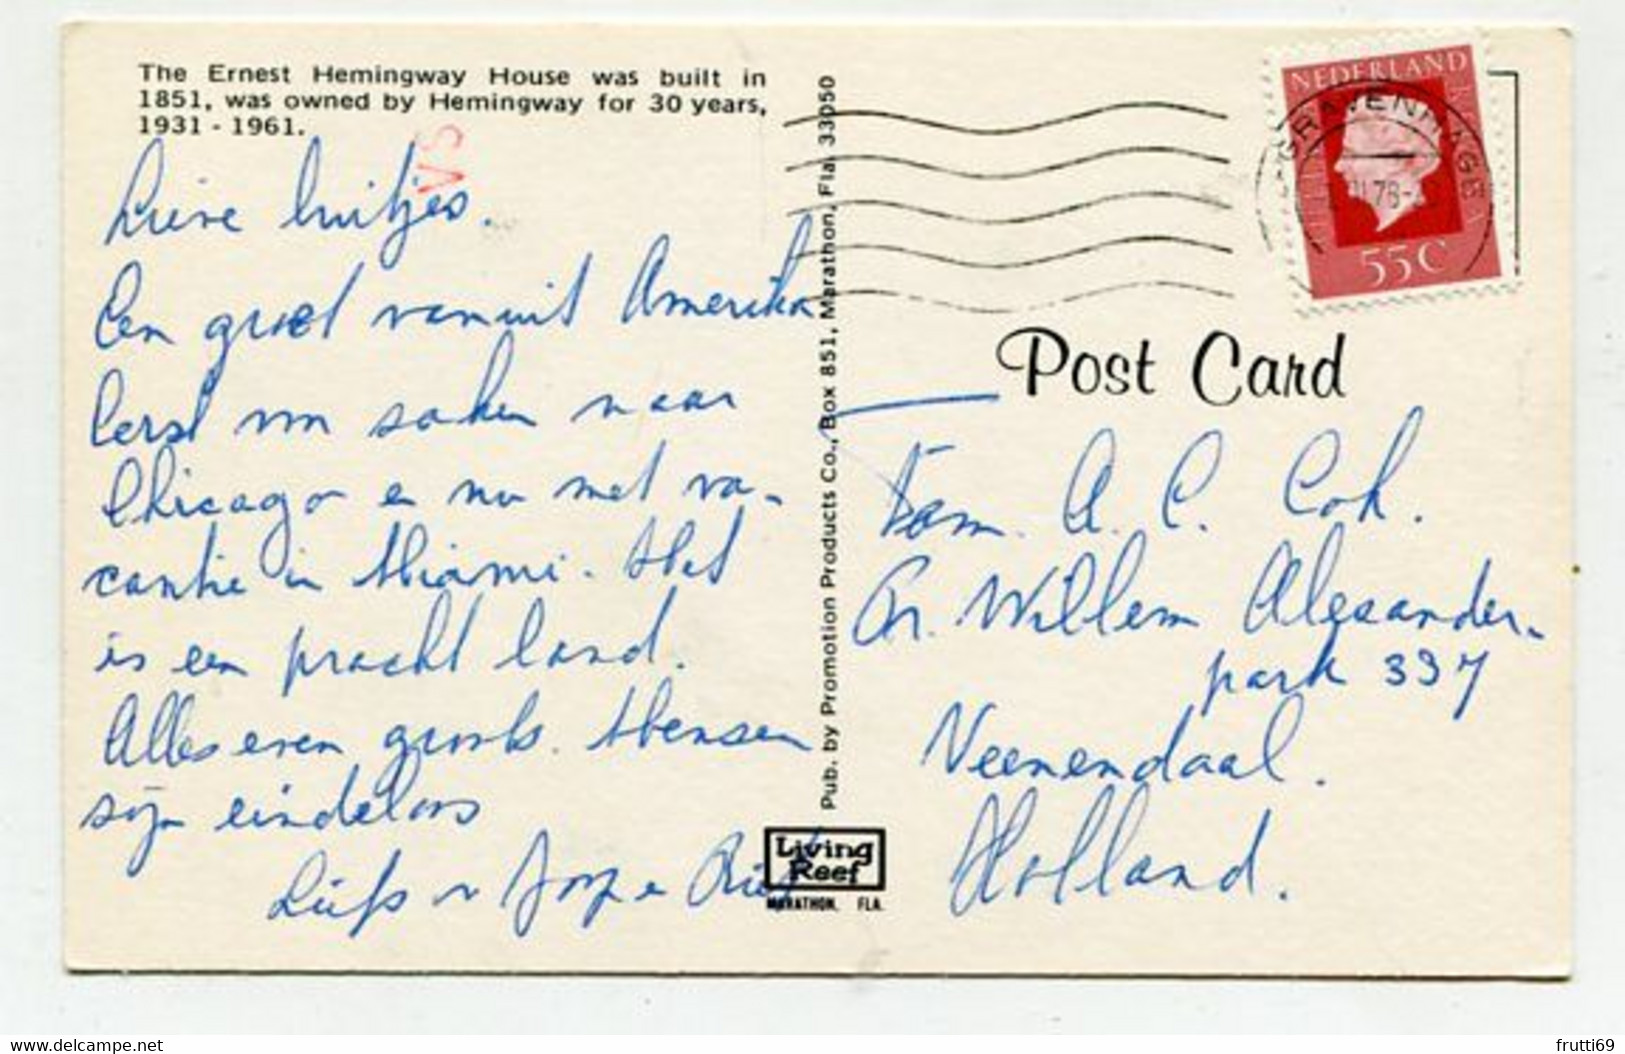 The Ernest Hemingway House was built in
1851, was owned by Hemingway for 30 years,
1931 - 1961.
VS
Lieve luitjes.
Een groet vanuit Amerika
Eerst vm zaken naar
Chicago en nu met va-
cantie in Miami. Het
is een pracht land.
Alles even groots. Mensen
zijn eindeloos
Liefs Joop Riet
Pub. by Promotion Products Co., Box 851, Marathon, Fla. 33050
Living
Reef
MARATHON, FLA.
NEDERLAND
55C
'S-GRAVENHAGE
78
Post Card
Fam. A. C. Cok.
Pr. Willem Alexander-
park 337
Veenendaal.
Holland.
www.delcampe.net
frutti69